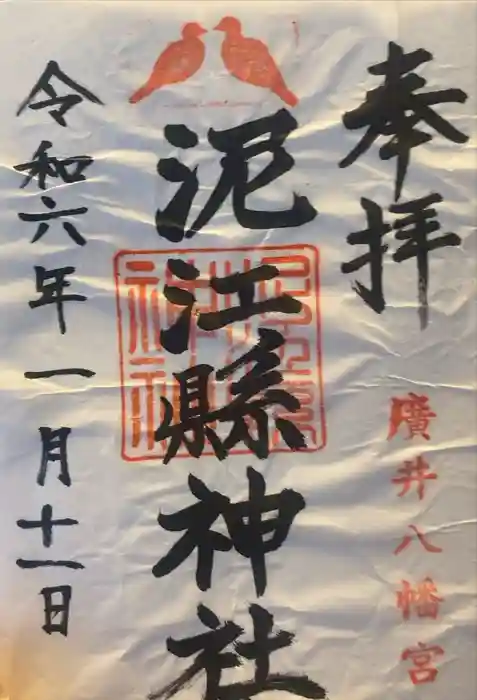 奉拝
廣井八幡宮
泥江縣神社
令和六年一月十一日